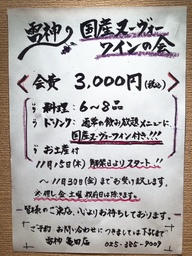 雷神 国産ヌーヴォー
ワインの会
会費 3,000円(税込)
料理:6〜8品
ドリンク:通常の飲み放題メニューに
国産ヌーヴォーワイン付き!!!
お土産付
11月15日(木) 解禁日よりスタート!!
〜11月30日(金)までお受け致します。
※但し、金・土曜 祝前日は除きます。
皆様のご来店、心よりお待ちしております。
ご予約・お問い合わせにつきましては下記まで
雷神 亀田店 025-385-7009